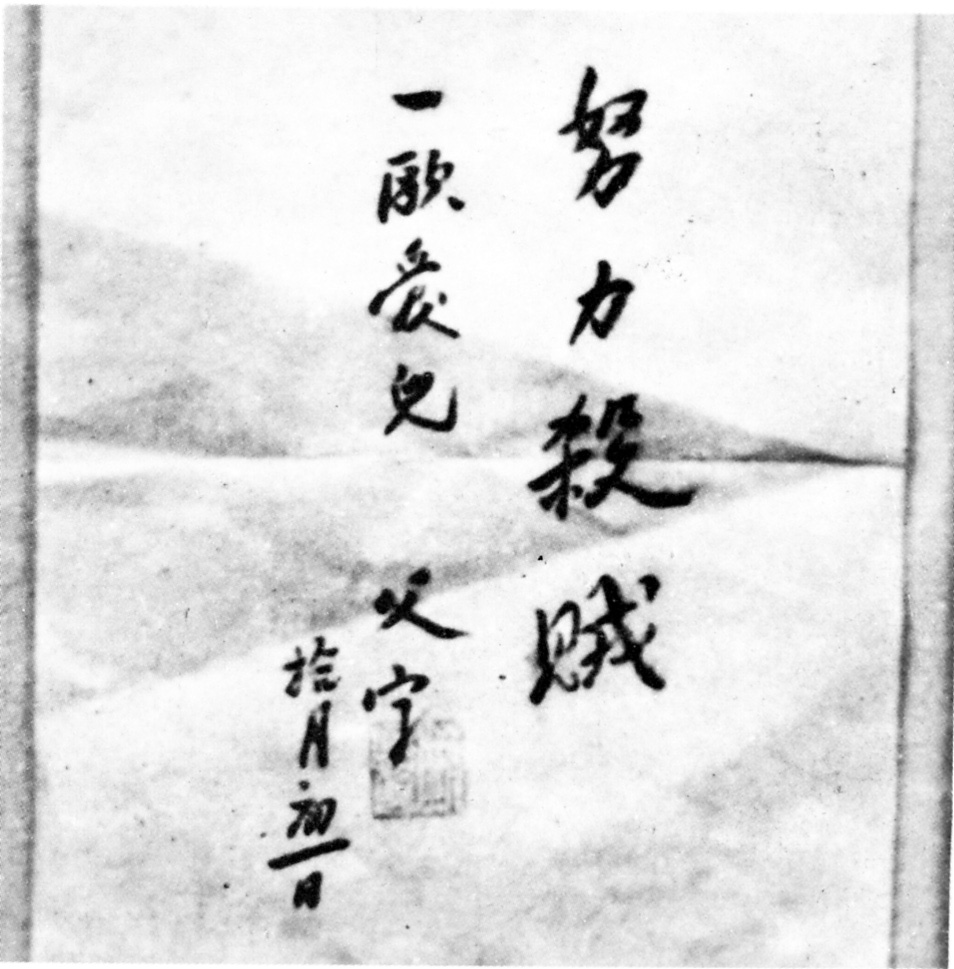 努力殺賊
一歐愛兒
父字
拾月初一日